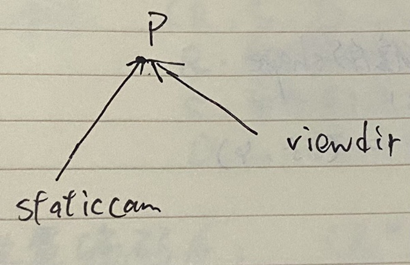 P
viewdir
staticcam